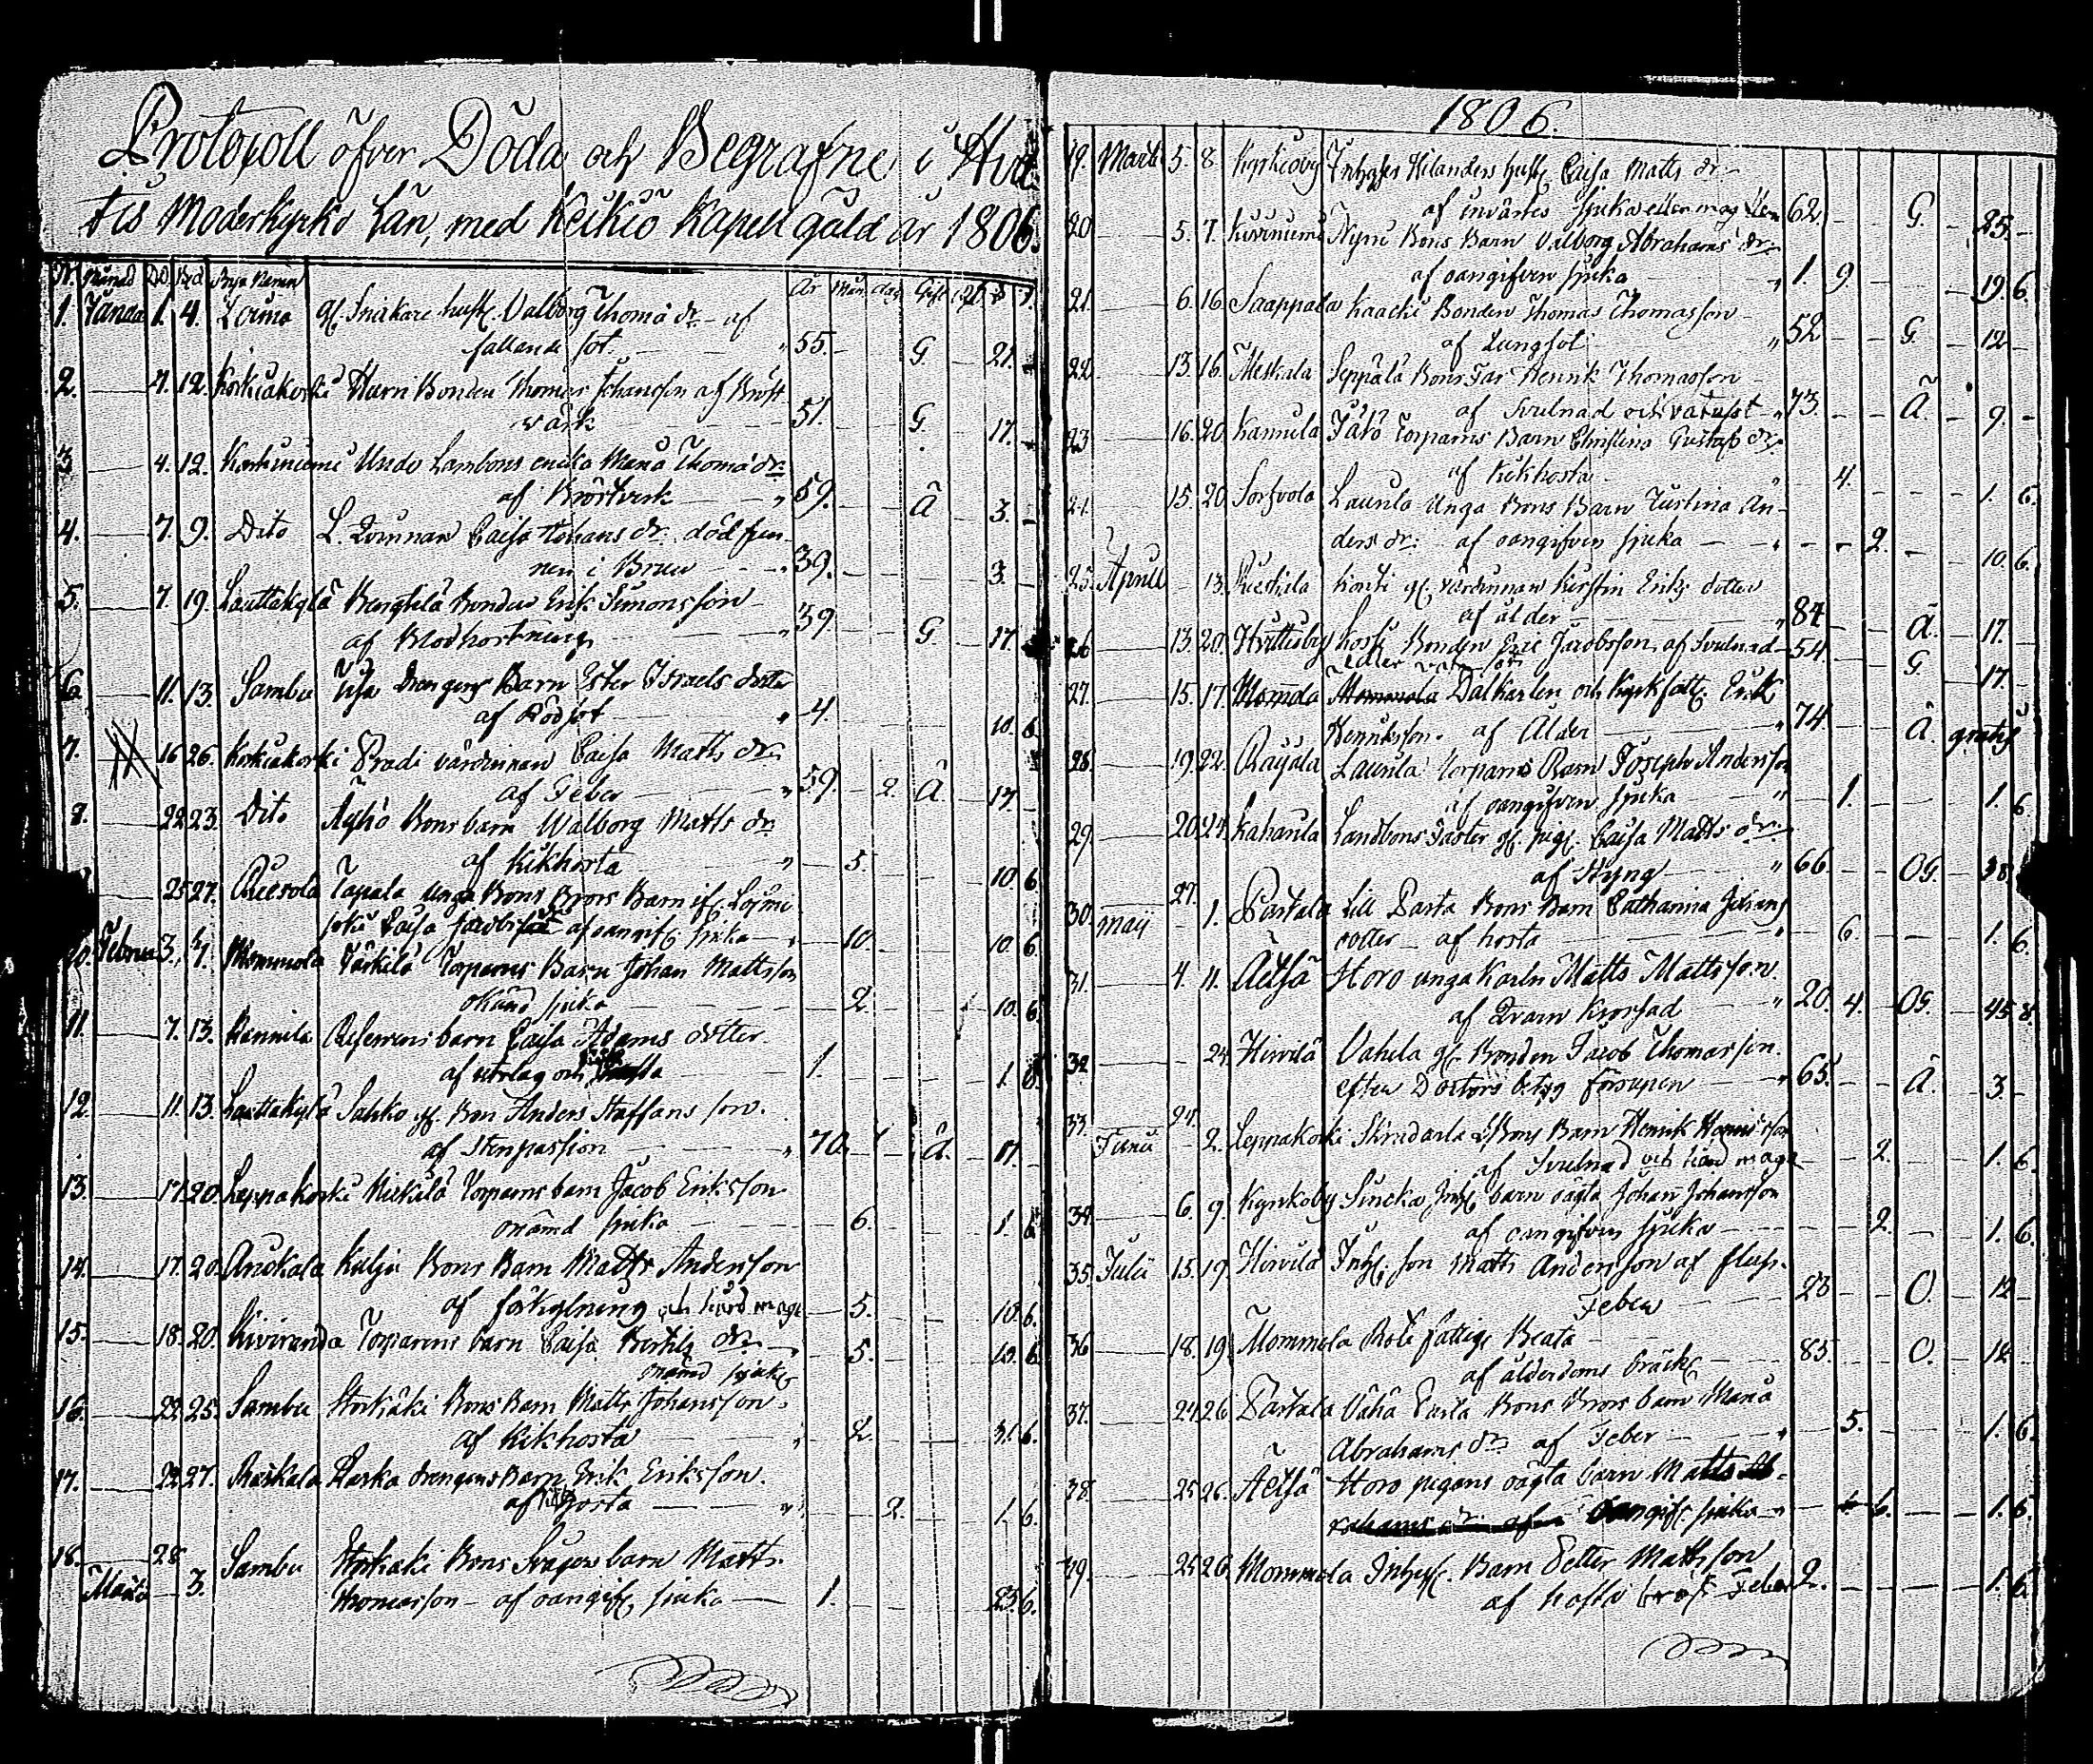 Protocoll öfver Döda och Begrafne i Hvit
tis Moderkyrko Län, med Keikiö Kapell gäld år 1806.
N. Månad Död Bgd Bya Namn År Mån. dag. Gift
1. Janua 1. 4. Loima gl. Snikare hust. Valborg Thomæ dr - af
fallande sot. " 55. G 21.
2. 4. 12. Korkiakoski Hurri Bonden Thomas Johansson af Bröst
värk 51. G. 17.
3 4. 12. Karhiniemi Unds Lambons enka Maria Thomæ dr
af Bröstverk " 59. Ä 3.
4. 7. 9. Dito L. Qvinnan Caisa Johans dr. död fun
nen i Brun " 39. 3.
5. 7. 19. Lauttakylä Bengtilä Bonden Erik Simonsson
af Blodhostning " 39. G 17.
6. 11. 13. Sambu Drengens Barn Ester Israels dotter
af Rödsot " 4. 10. 6
7. 16 26. Korkiakoski Pradi värdinnan Caisa Matts dr
af Feber " 59. 2. Ä. 17.
8. 22 23. Dito Äyhö Bons barn Walborg Matts dr
af Kikhosta " 5. 10. 6
25 27. Raesola Tapala unga Bons Brors Barn if. Loimi
joki Caisa Jacobs af oangif. sjuka " 10. 10 6
10. Februa 3. 4. Mommola Yärkilä Torparns Barn Johan Mattsson
okänd sjuka 2. 10. 6.
11. 7. 13. Kannila Reserrens barn Caisa Adams dotter
af utslag och 1. 1. 6.
12. 11. 13. Lauttakylä Sahko gl. Bon Anders Staffans son.
af Stenpassion " 70. Ä. 17.
13. 17. 20. Leppakoski Mickilä Torparns barn Jacob Eriksson
onämd sjuka 6. 1. 6
14. 17. 20. Raiskala Kilju Bons Barn Matts Anderson
af förkylning och hård mage 5. 10. 6.
15. 18. 20. Kiviranda Torparens barn Caisa Bertils dr 5. 10. 6
onämd sjuka
16. 22. 25. Sambu Storkäki Bons Barn Matts Johansson.
af Kikhosta " 2. 31. 6.
17. 22 27. Raiskala Karka drengens Barn Erik Eriksson.
af hosta " 2. 1. 6.
18. 28. Sambu Storkäki Bons Svågers barn Matts.
Martii 3. Thomasson - af oangif. sjuka 1. 23. 6.
1806.
19. Martii 5. 8. Kyrkioby Inhyses Kilanders hust. Caisa Matts dr
af invärtes sjuka eller mag 62. G. 25.
20 5. 7. Kiviniemi Nyni Bons Barn Valborg Abrahams dr
af oangifven sjuka " 1. 9 19. 6.
21. 6. 16. Saappala Kaacki Bonden Thomas Thomasson
af Lungsot " 52 G. 12
22. 13. 16. Meskala Seppälä Bons Far Henrik Thomasson
af Svulnad och vatusot " 73. Ä 9.
23 16. 20. Kannila Järö Torparns Barn Christina Gustafs dr
af Kikhosta " 4. 1. 6.
24. 15. 20. Sorfvola Laurila Unga Bons Barn Justina An
ders dr: af oangifven sjuka " 2. 10. 6.
25. Aprill 13. Rieskala Konti gl. värdinnan Kirstin Eriks dotter
af ålder " 84. Ä. 17.
26 13. 20. Hvittisby Koski Bonden Eric Jacobsson af Svulnad 54. G. 17.
eller vatu sot
27. 15. 17. Momola Dalkarlen och Kyrkfatt. Erik
Henriksson. af Ålder " 74. Ä. gratis
28. 19. 22. Raijala Laurila Torparns Barn Joseph Anderson
af oangifven sjuka " 1. 1. 6
29. 20. 24. Kahanla Landbons Faster gl. pig. Caisa Matts dr:
af Styng " 66. OG. 38
30. 27. Pärtala Lill Parta Bons Barn Catharina Johans
Maij 1. dotter - af hosta " 6. 1. 6.
31. 4. 11. Äetsä Horo unga Karln Matts Mattsson.
af Qvarn Krossad " 20. 4. OG. 45 8.
32. 24. Hirvilä Vahela gl. Bonden Jacob Thomasson.
efter Doctors betyg försupen " 65. Ä. 3.
33. 24. Leppakoski Skindarla Bons Barn Henrik
Junii 2. af Svulnad och hård maga 2. 1. 6.
34. 6. 9. Kyrkoby Sincka Inh. barn oägta Johan Johansson
af oangifven sjuka 2. 1. 6.
35. Julii 15. 19. Hirvilä Inh. son Matts Anderson af fluss.
Feber 23 O. 12
36 18. 19 Mommola Rote fattige Beata
af ålderdoms bräck. 85. O. 12
37. 24 26 Pärtala Vähä Parta Bons Brors barn Maria
Abrahams dr af Feber " 5. 1. 6.
38. 25 26. Äetsä Horo pigans oägta barn Matts
oangif. sjuka " 6. 1. 6.
39. 25 26 Mommola Inhys. Barn Petter Mattsson
af hosta bröst Feber 2. 1. 6.